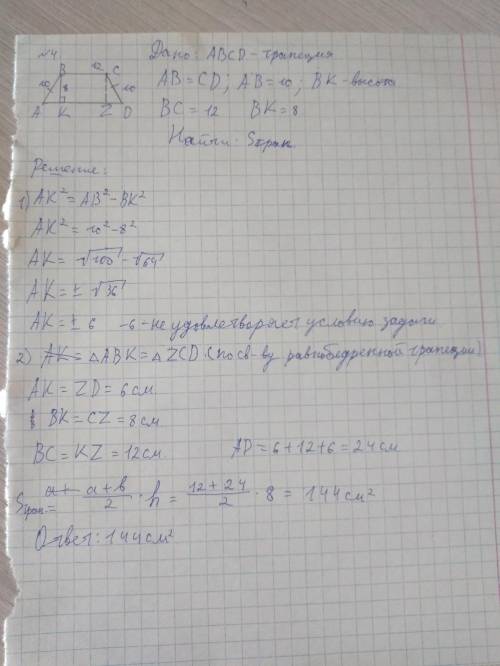 №4
Дано: ABCD - трапеция
AB = CD; AB = 10; BK - высота
BC = 12 BK = 8
Найти: Sтрап.
B 12 C
10 8 10
A K Z D
Решение:
1) AK² = AB² - BK²
AK² = 10² - 8²
AK = √100 - √64
AK = ± √36
AK = ± 6 -6 - не удовлетворяет условию задачи
2) AK = △ABK = △ZCD (по св-ву равнобедренной трапеции)
AK = ZD = 6 см
BK = CZ = 8 см
BC = KZ = 12 см AD = 6 + 12 + 6 = 24 см
Sтрап. = a + a + b / 2 · h = 12 + 24 / 2 · 8 = 144 см²
Ответ: 144 см²